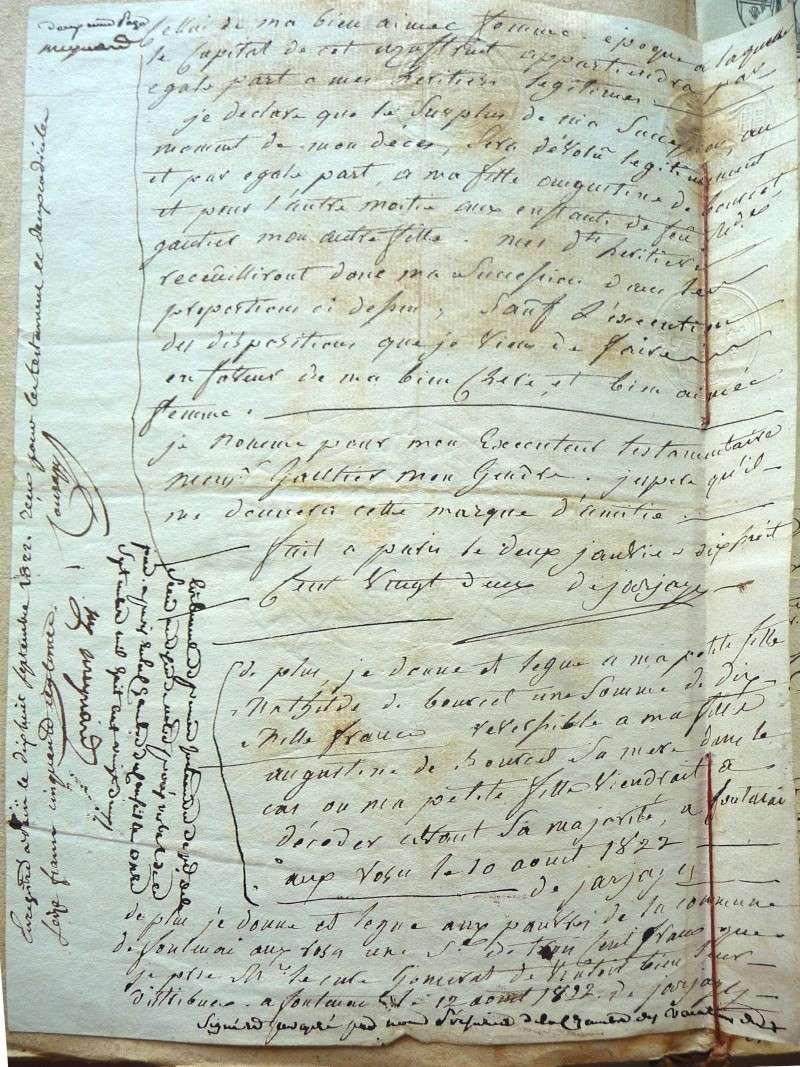 deuxième page
meynard
Celui de ma bien aimée femme. époque a laquelle
le Capital de cet usufruit appartiendra par
egale part a mes heritiers legitimes
je declare que le Surplus de ma Succession, au
moment de mon décès, Sera dévolu legitimement
et par egale part, a ma fille augustine de bourcet
et pour l'autre moitié aux enfants de feu
gautier mon autre fille. mes dts heritiers
recueilliront donc ma Succession dans les
proportions ci dessus, Sauf l'execution
des dispositions que je viens de faire
en faveur de ma bien Chere et bien aimée
femme.
je nomme pour mon Executeur testamentaire
monsr Gautier mon Gendre. j'espere qu'il
me donnera cette marque d'amitié.
fait a paris le deux janvier dix huit
Cent Vingt deux de jarjayes
de plus, je donne et legue a ma petite fille
Mathilde de bourcet une Somme de dix
mille francs reversible a ma fille
augustine de bourcet Sa mere dans le
cas ou ma petite fille viendrait a
décéder avant Sa majorité, a fontenai
aux roses le 10 aout 1822
de jarjayes
de plus je donne et legue aux pauvres de la commune
de fontenai aux roses une Se de trois Cent francs que
je prie Mr le curé de vouloir bien leur
distribuer. a fontenai le 12 aout 1822. de jarjayes
Signé et paraphé par nous
Enregistré à le dix huit septembre 1822. reçu pour le testament
cinquante
meynard
septembre mil huit cent vingt deux